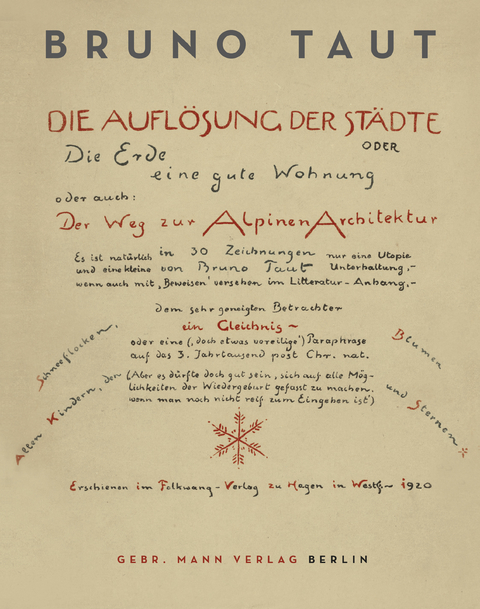 BRUNO TAUT
DIE AUFLÖSUNG DER STÄDTE
ODER
Die Erde
eine gute Wohnung
oder auch:
Der Weg zur Alpinen Architektur
Es ist natürlich in 30 Zeichnungen nur eine Utopie
und eine kleine von Bruno Taut Unterhaltung,-
wenn auch mit ‚Beweisen' versehen im Litteratur-Anhang,-
dem sehr geneigten Betrachter
ein Gleichnis ~
oder eine (‚doch etwas voreilige') Paraphrase
auf das 3. Jahrtausend post Chr. nat.
(Aber es dürfte doch gut sein, sich auf alle Mög-
lichkeiten der Wiedergeburt gefasst zu machen.
wenn man noch nicht reif zum Eingehen ist')
Allen Kindern, den
Schneeflocken,
Blumen
und Sternen
Erschienen im Folkwang-Verlag zu Hagen in Westf. ~ 1920
GEBR. MANN VERLAG BERLIN